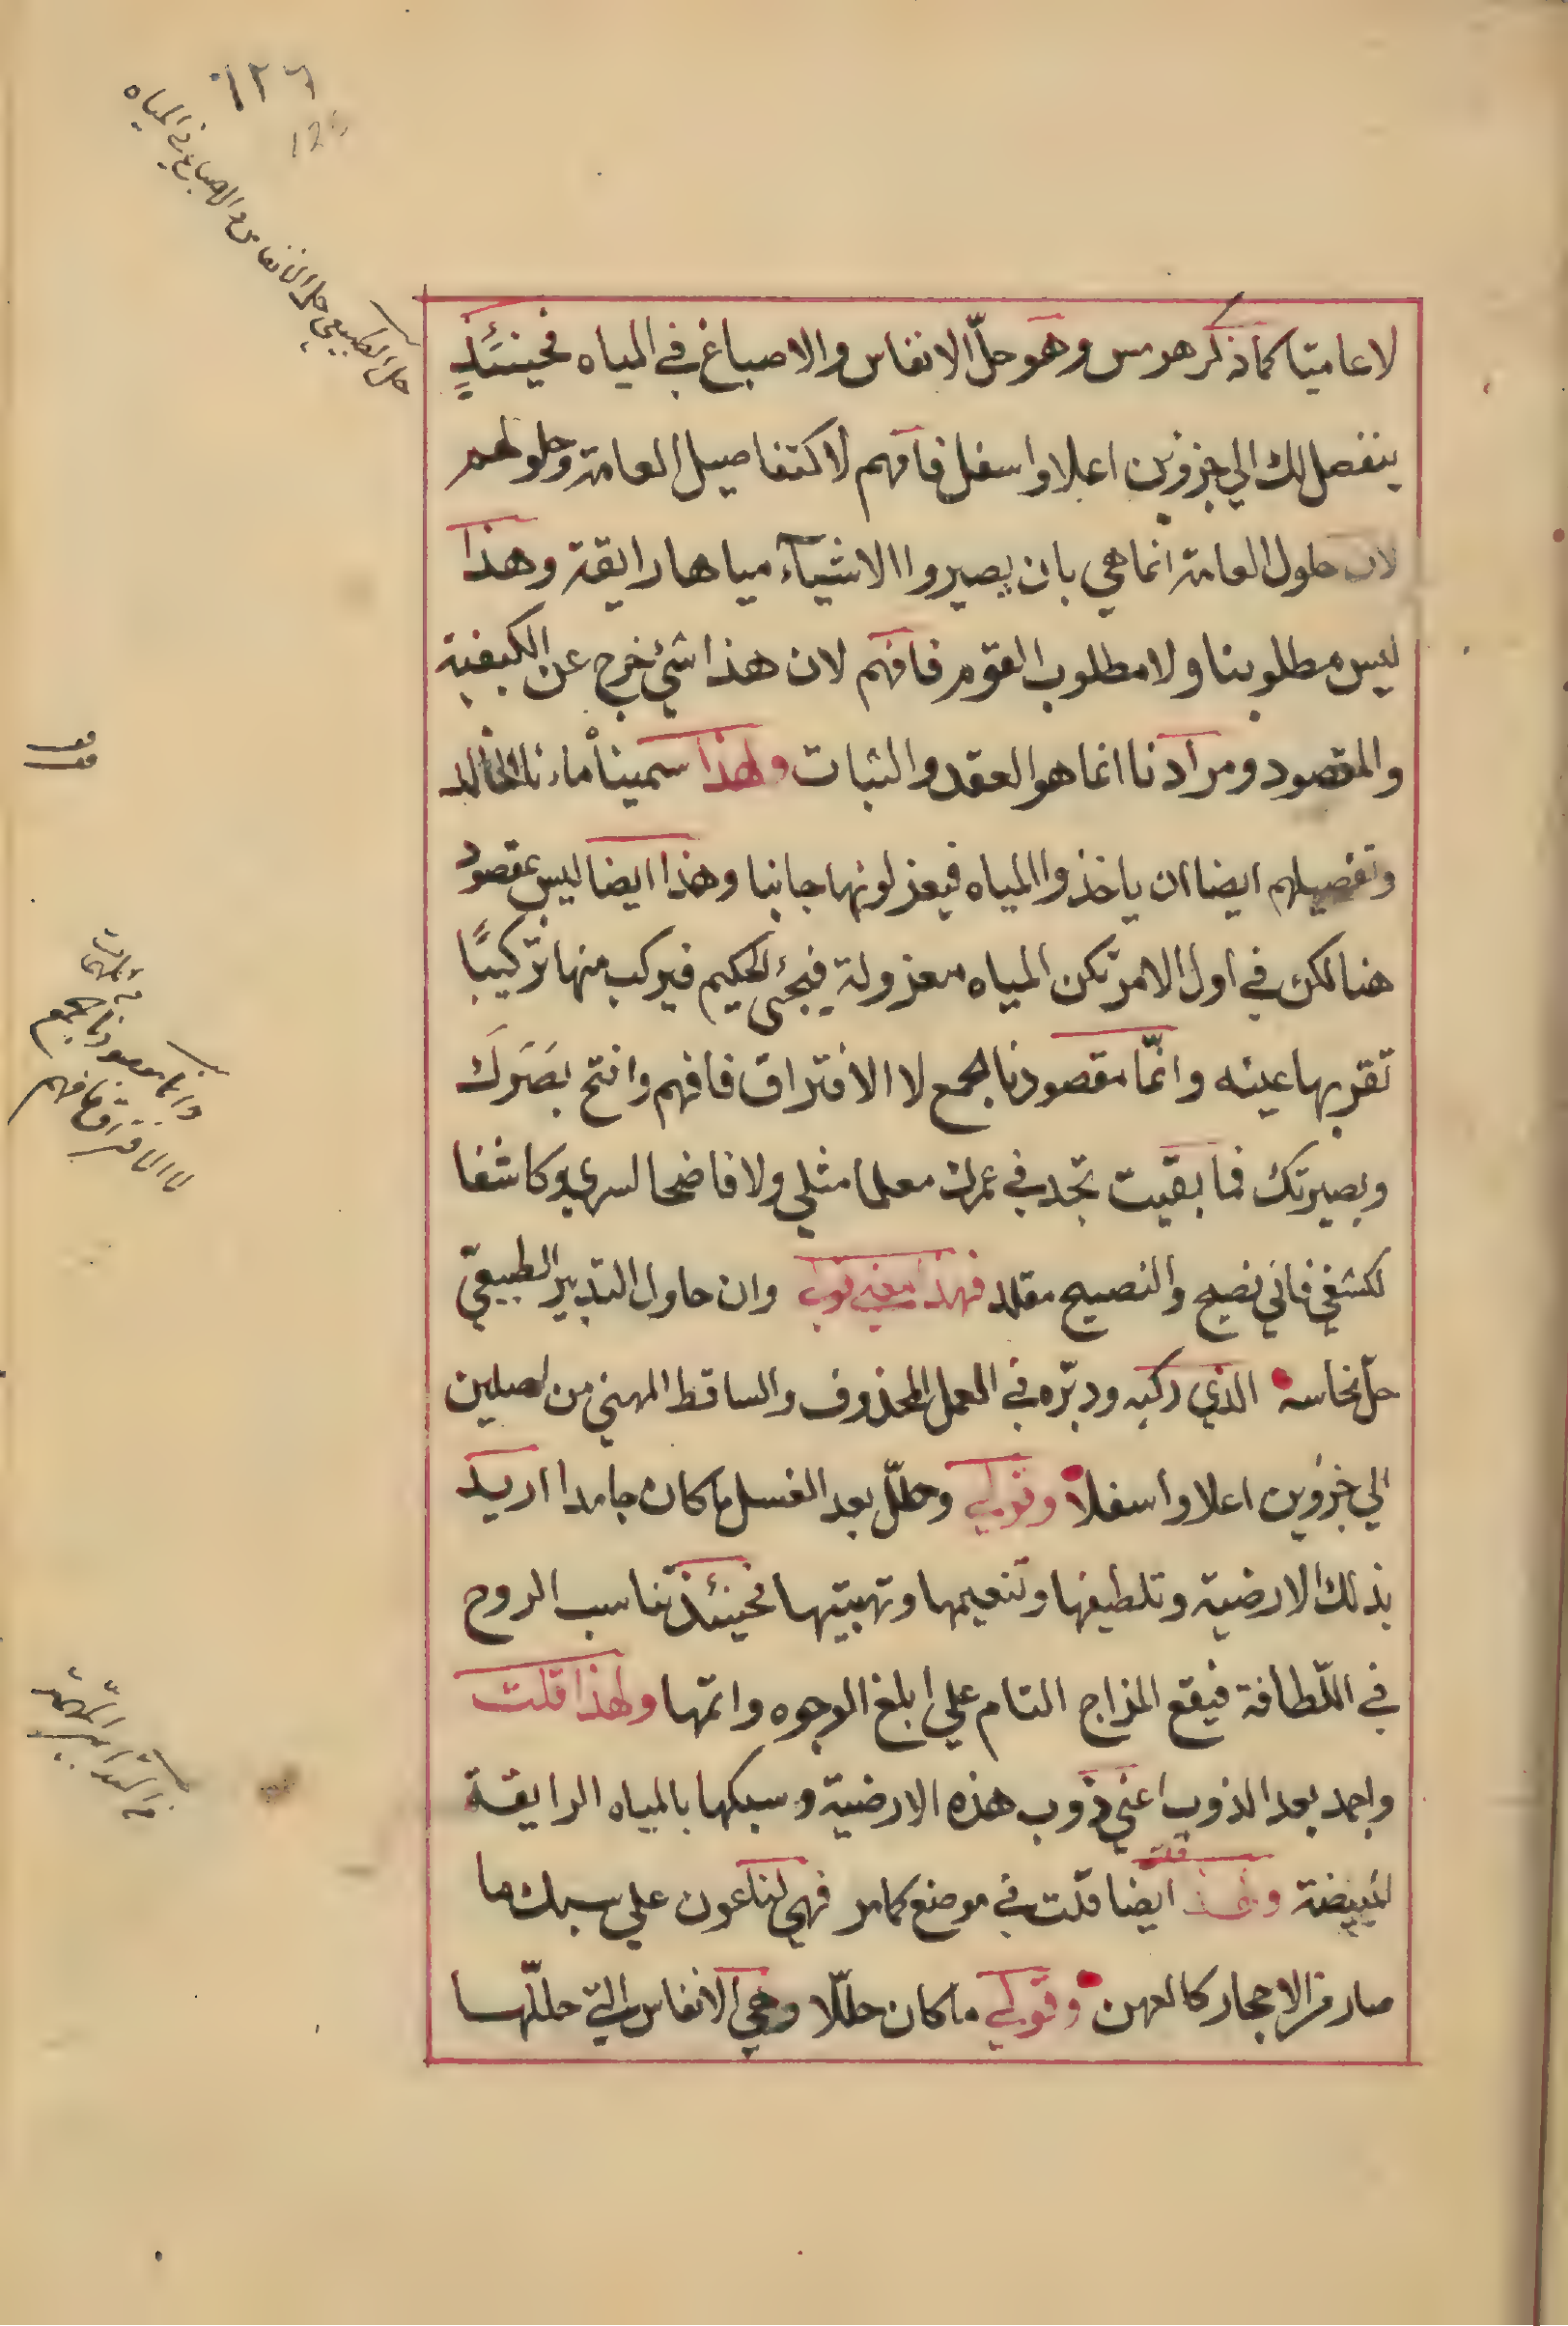 ١٢٦
حل الطبيعي حل الانفاس والاصباغ في المياه
لا عاميتا كما ذكر هرمس وهو حلّ الانفاس والاصباغ في المياه فحينئذٍ
ينفصل لك الي جزوين اعلا واسفل فافهم لا كتفاصيل العامة وحلولهم
لان حلول العامة انما هي بان يصيروا الاشيآء مياها رايقة وهذا
ليس مطلوبنا ولا مطلوب القوم فافهم لان هذا شئ خرج عن الكيفية
والمقصود ومرادنا انما هو العقد والثبات ولهذا سمينا ماءنا الخالد
وتفصيلهم ايضا ان ياخذوا المياه فيعزلونها جانبا وهذا ايضا ليس بمقصود
هنا لكن في اول الامر تكن المياه معزولة فيجئ الحكيم فيركب منها تركيبًا
تقر بها عينه وانّما مقصودنا الجمع لا الافتراق فافهم وافتح بصَرَكَ
وبصيرتك فما بقيت تجد في عمرك معلما مثلي ولا فاضحا لسري وكاشفا
لكشفي فاني نصيح والنصيح مقلد فهذا معني قوله وان حاول التدبير الطبيعي
حلّ نحاسه الذي ركبه ودبّره في العمل المحذوف والساقط المهني من اصلين
الي جزوين اعلا واسفلا وقولي وحلّل بعد الغسل ما كان جامدا اريد
بذلك الارضية وتلطيفها وتنعيمها وتهبيتها فحينئذ تناسب الروح
في اللّطافة فيقع المزاج التام علي ابلغ الوجوه واتمها ولهذا قلت
واجمد بعد الذوب اعني ذوب هذه الارضية وسبكها بالمياه الرايقة
المبيضة ولهذا ايضا قلت في موضع كما مر فهي لنا عون علي سبك ما
صار من الاحجار كالعهن وقولي ما كان حلّلا وهي الانفاس التي حلّلها
وانما مقصودنا الجمع
لا الافتراق فافهم